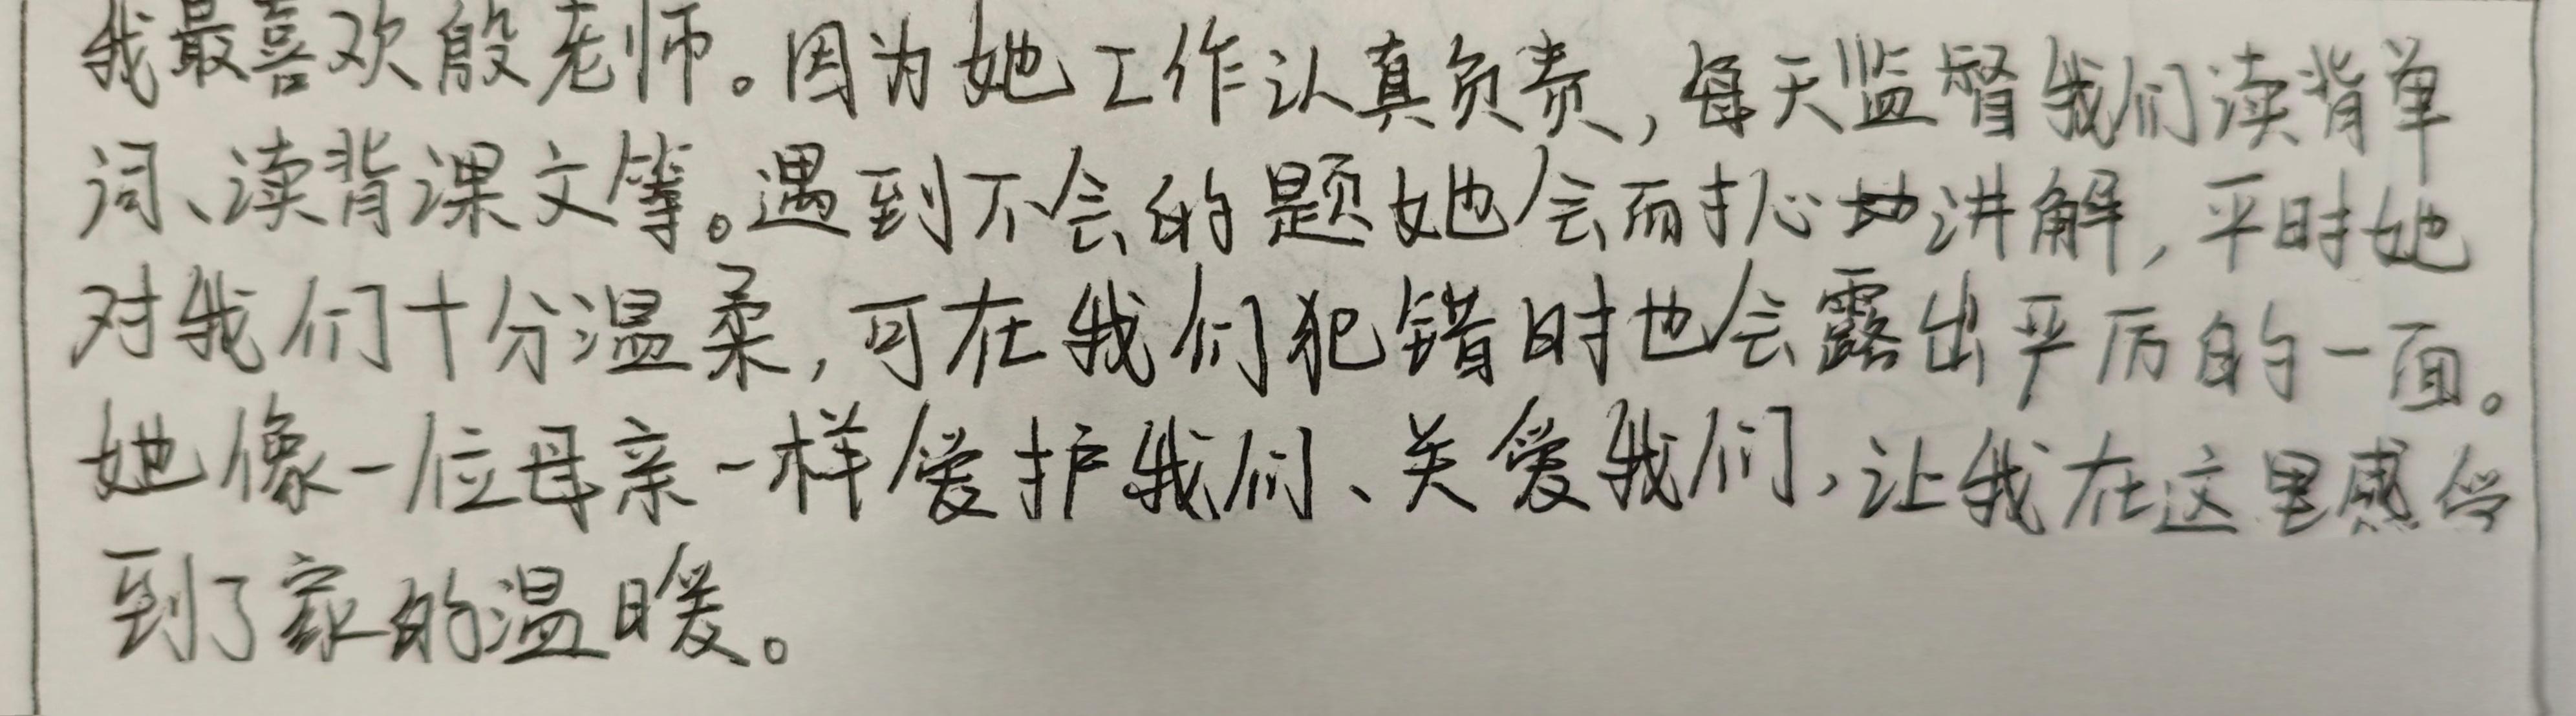 我最喜欢殷老师。因为她工作认真负责,每天监督我们读背单
词、读背课文等。遇到不会的题她会耐心地讲解,平时她
对我们十分温柔,可在我们犯错时也会露出严厉的一面。
她像一位母亲一样爱护我们、关爱我们,让我在这里感受
到了家的温暖。